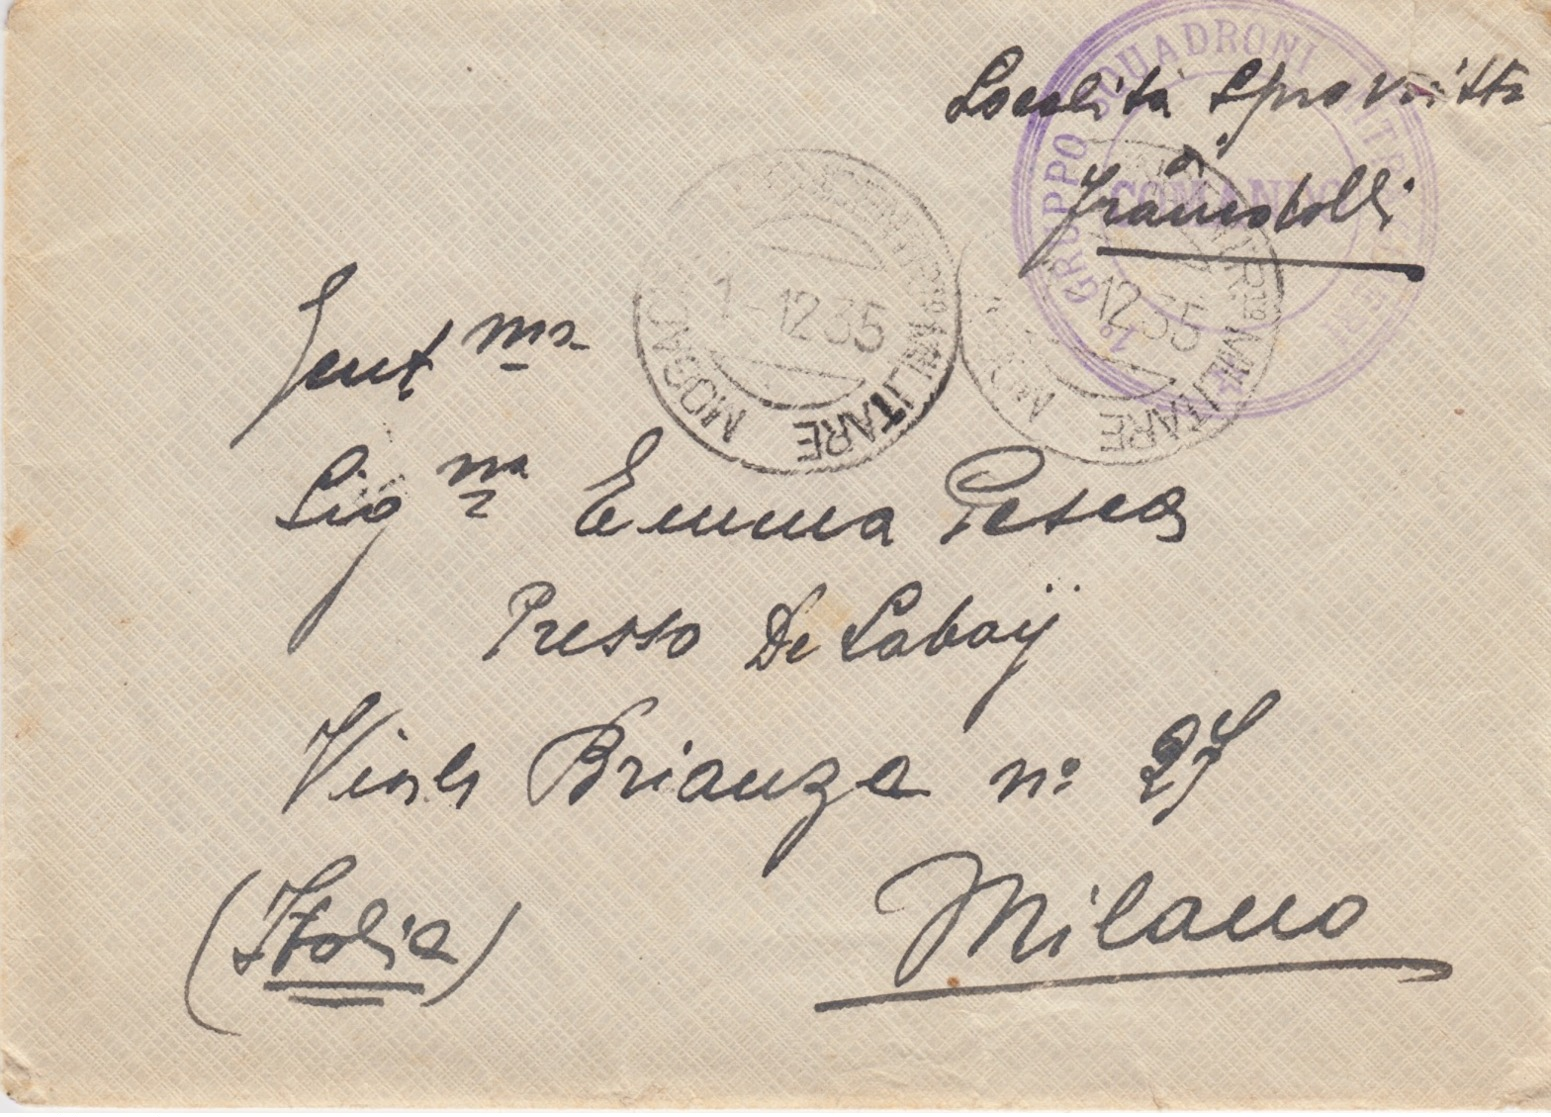 Località sprovvista
di
francobolli
2° GRUPPO SQUADRONI
COMANDO
MOGADISCIO CONCENTR.TO MILITARE
1 12 35
CONCENTR.TO MILITARE
12 35
Gent ma
Sig na Emma Pesca
Presso De Labaÿ
Viale Brianza n: 27
Milano
(Italia)